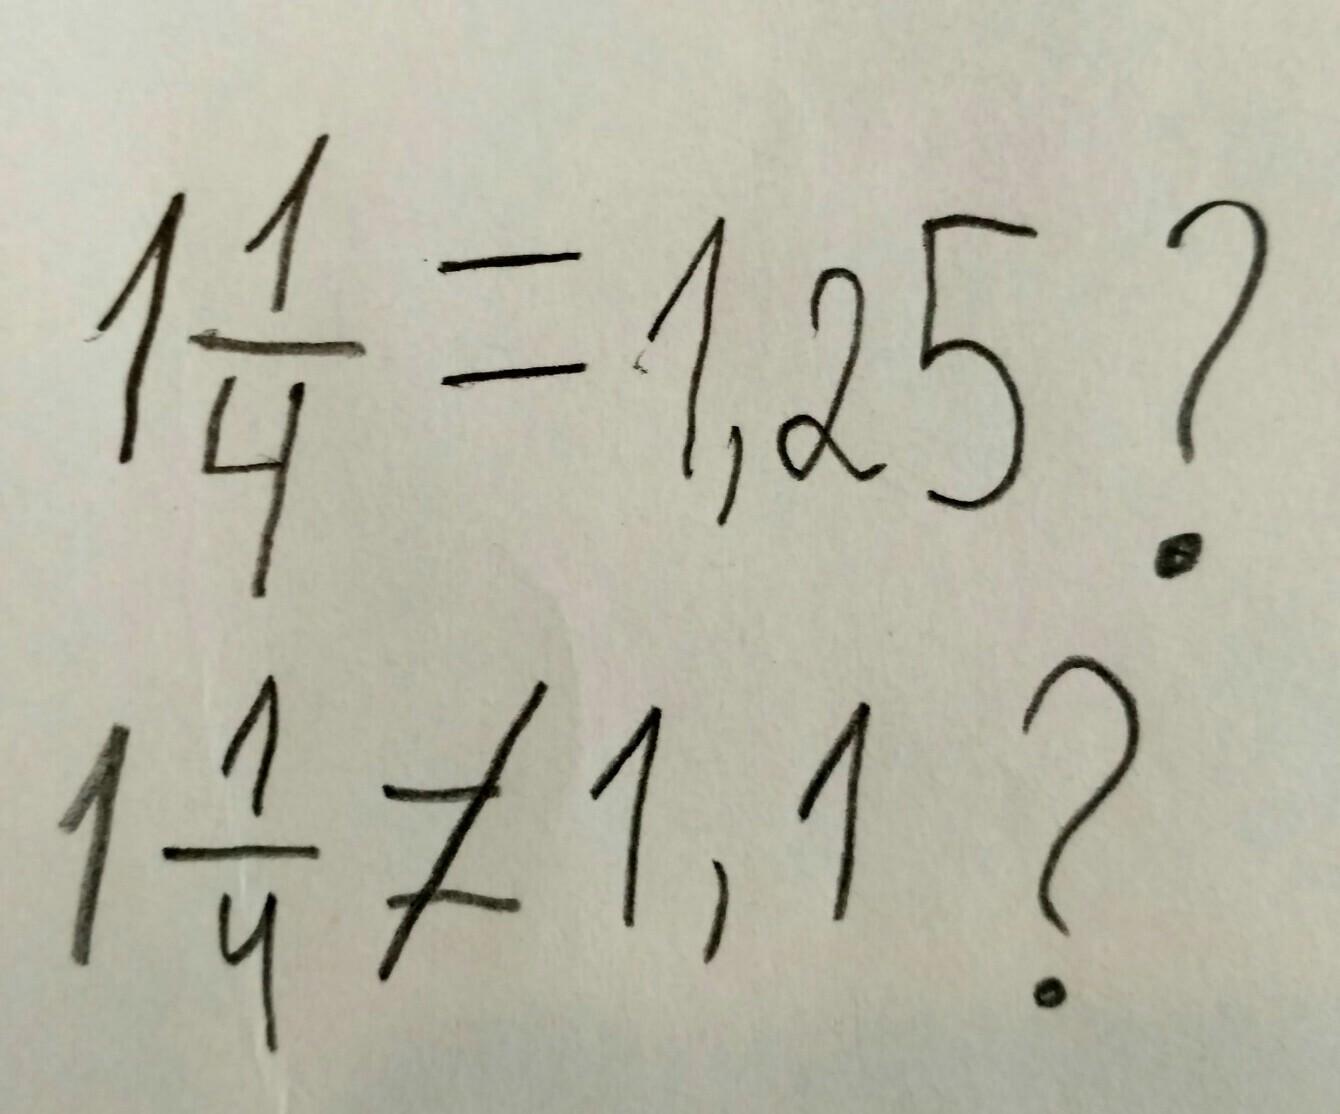 1 1/4 = 1,25 ?
1 1/4 ≠ 1,1 ?